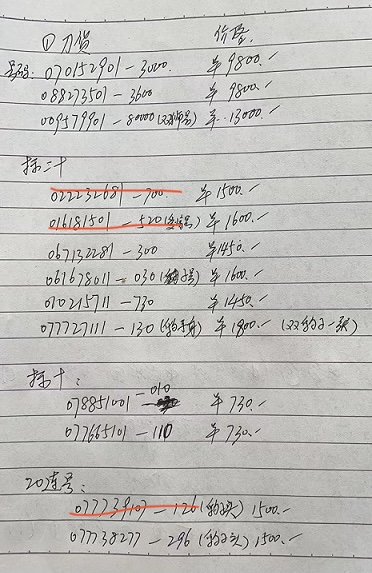 ① 刀货 价格
070152901-3000. ¥9800.-
088273501-3600 ¥9800.-
009579901-80000 ¥13000.-
标二十
022232681-700. ¥1500.-
016181501-520 ¥1600.-
067132281-300 ¥1450.-
061678011-030 ¥1600.-
010215711-730 ¥1450.-
077727111-130 ¥1800.-
标十:
-010
078851001 ¥730.-
077665101-110 ¥730.-
20连号:
077739107-126 1500.-
077738277-296 1500.-